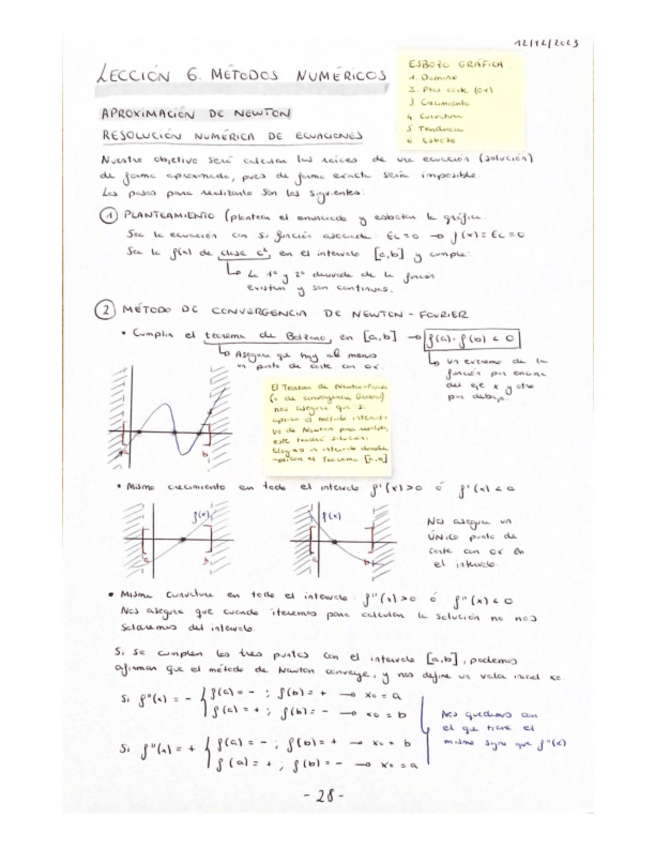 12/12/2023
LECCIÓN 6. MÉTODOS NUMÉRICOS
ESBOZO GRÁFICA
1. Dominio
2. Ptos corte (0x)
3. Crecimiento
4. Curvatura
5. Tendencia
6. Esbozo
APROXIMACIÓN DE NEWTON
RESOLUCIÓN NUMÉRICA DE ECUACIONES
Nuestro objetivo será calcular las raíces de una ecuación (solución)
de forma aproximada, pues de forma exacta sería imposible.
Los pasos para realizarlo son los siguientes:
① PLANTEAMIENTO (plantear el enunciado y esbozar la gráfica.
Sea la ecuación con su función asociada: Ec=0 → f(x)=Ec=0
Sea la f(x) de clase c², en el intervalo [a,b] y cumple:
↳ La 1ª y 2ª derivada de la función
existen y son continuas.
② MÉTODO DE CONVERGENCIA DE NEWTON-FOURIER
• Cumplir el teorema de Bolzano, en [a,b] → f(a)·f(b) < 0
↳ Asegura que hay al menos
un punto de corte con 0x.
↳ Un extremo de la
función por encima
del eje x y otro
por debajo.
El Teorema de Newton-Fourier
(o de convergencia General)
nos asegura que si
aplico el método iterati-
vo de Newton para resolver,
este tendrá solución.
Elegimos un intervalo donde
el Teorema [a,b]
a
b
• Mismo crecimiento en todo el intervalo f'(x)>0 ó f'(x)<0
f(x)
a
b
f(x)
a
b
Nos asegura un
ÚNICO punto de
corte con 0x en
el intervalo.
• Misma curvatura en todo el intervalo: f''(x)>0 ó f''(x)<0
Nos asegura que cuando iteremos para calcular la solución no nos
salgamos del intervalo
Si se cumplen los tres puntos con el intervalo [a,b], podemos
afirmar que el método de Newton converge, y nos define un valor inicial x₀.
Si f''(x) = - { f(a) = - ; f(b) = + → x₀ = a
f(a) = + ; f(b) = - → x₀ = b
Si f''(x) = + { f(a) = - ; f(b) = + → x₀ = b
f(a) = + ; f(b) = - → x₀ = a
Nos quedamos con
el que tiene el
mismo signo que f''(x)
- 28 -